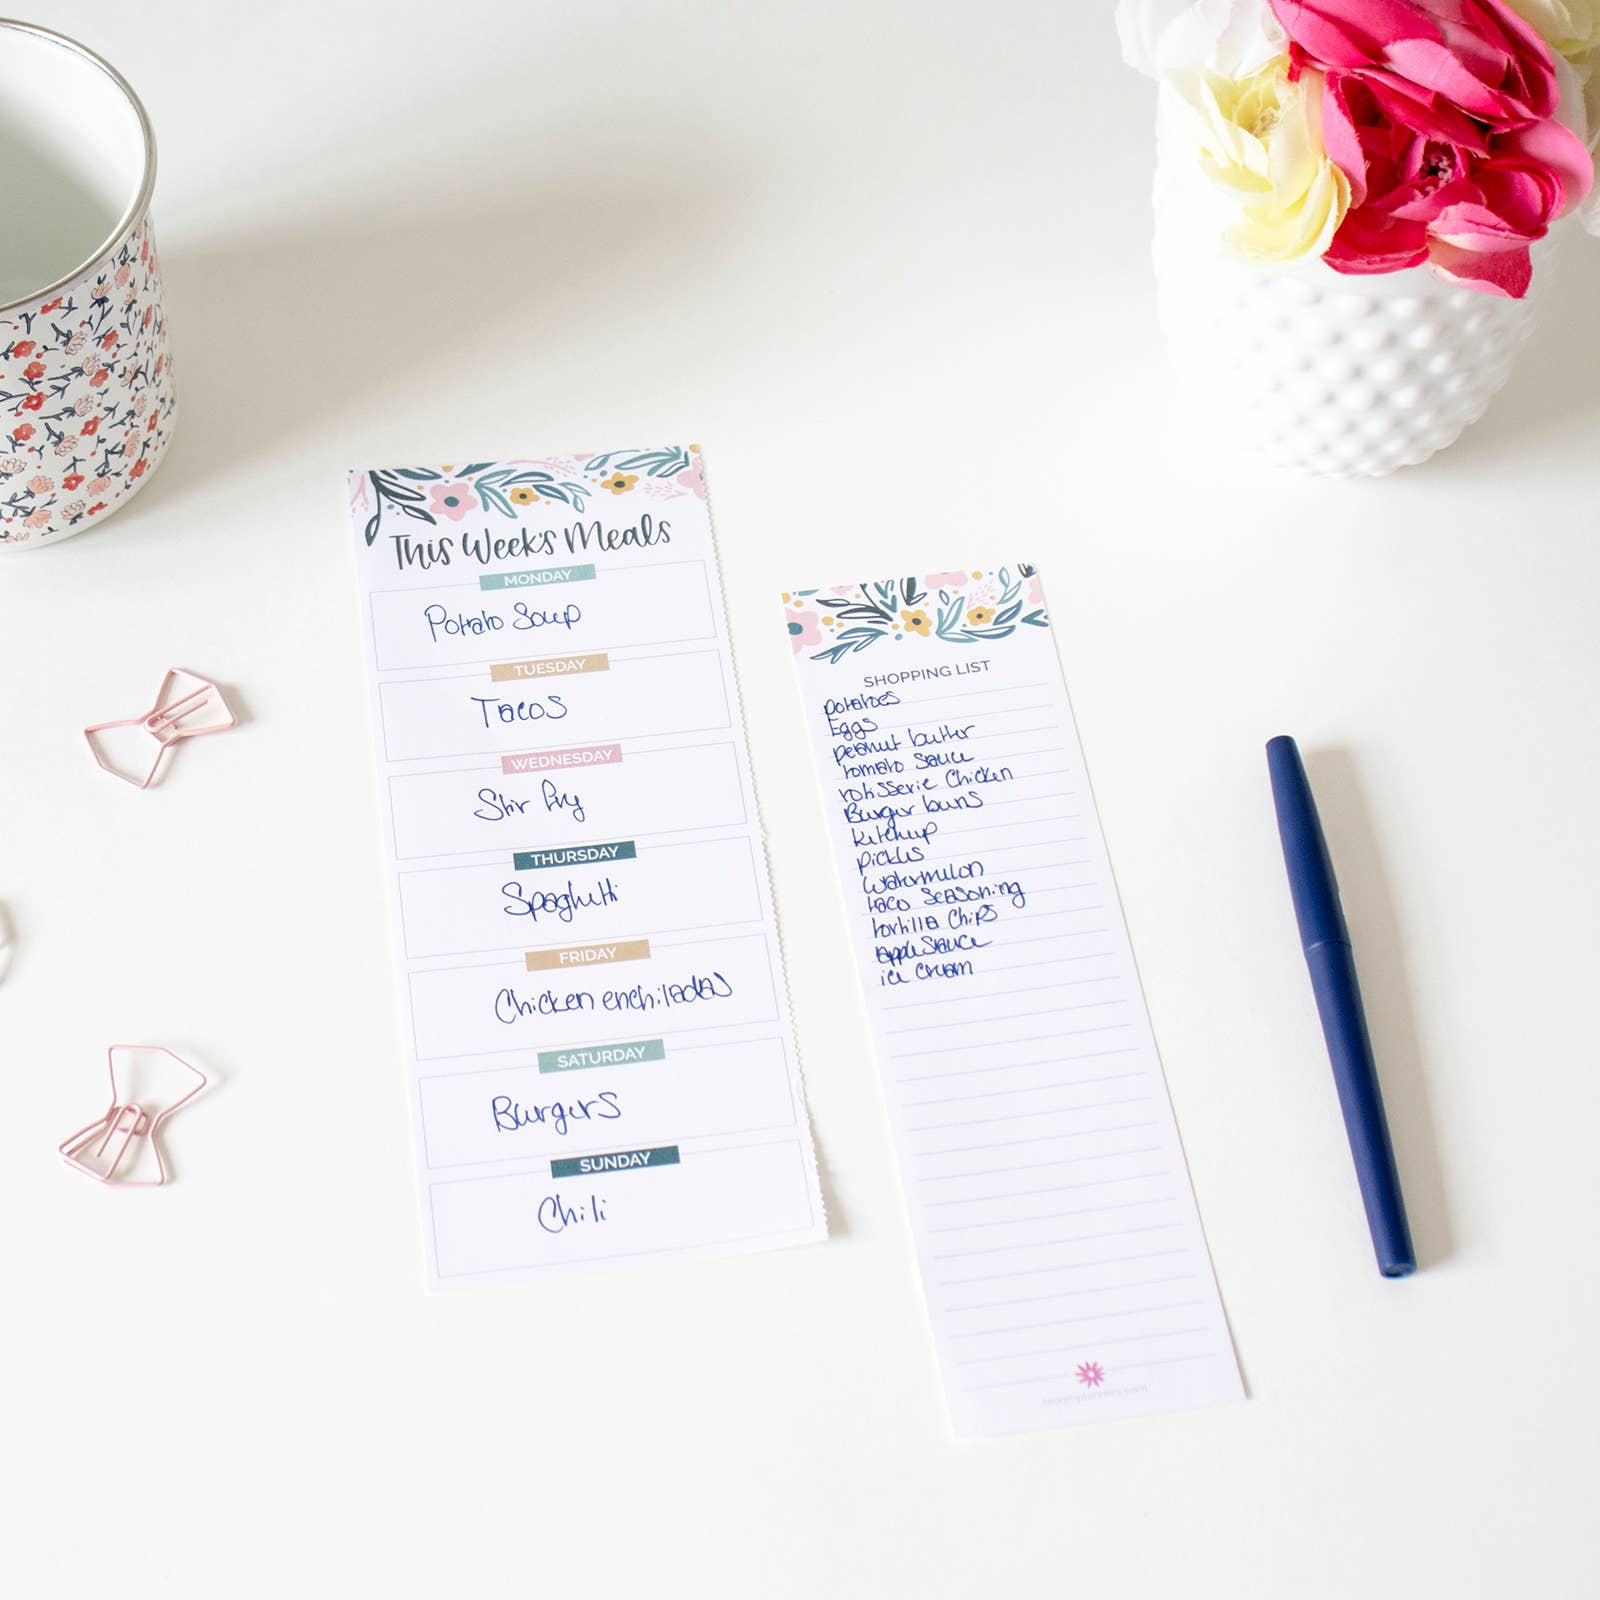 This Week's Meals
MONDAY
Potato Soup
TUESDAY
Tacos
WEDNESDAY
Stir Fry
THURSDAY
Spaghetti
FRIDAY
Chicken enchiladas
SATURDAY
Burgers
SUNDAY
Chili
SHOPPING LIST
potatoes
Eggs
peanut butter
tomato sauce
rotisserie chicken
Burger buns
ketchup
pickles
watermelon
taco seasoning
tortilla chips
applesauce
ice cream